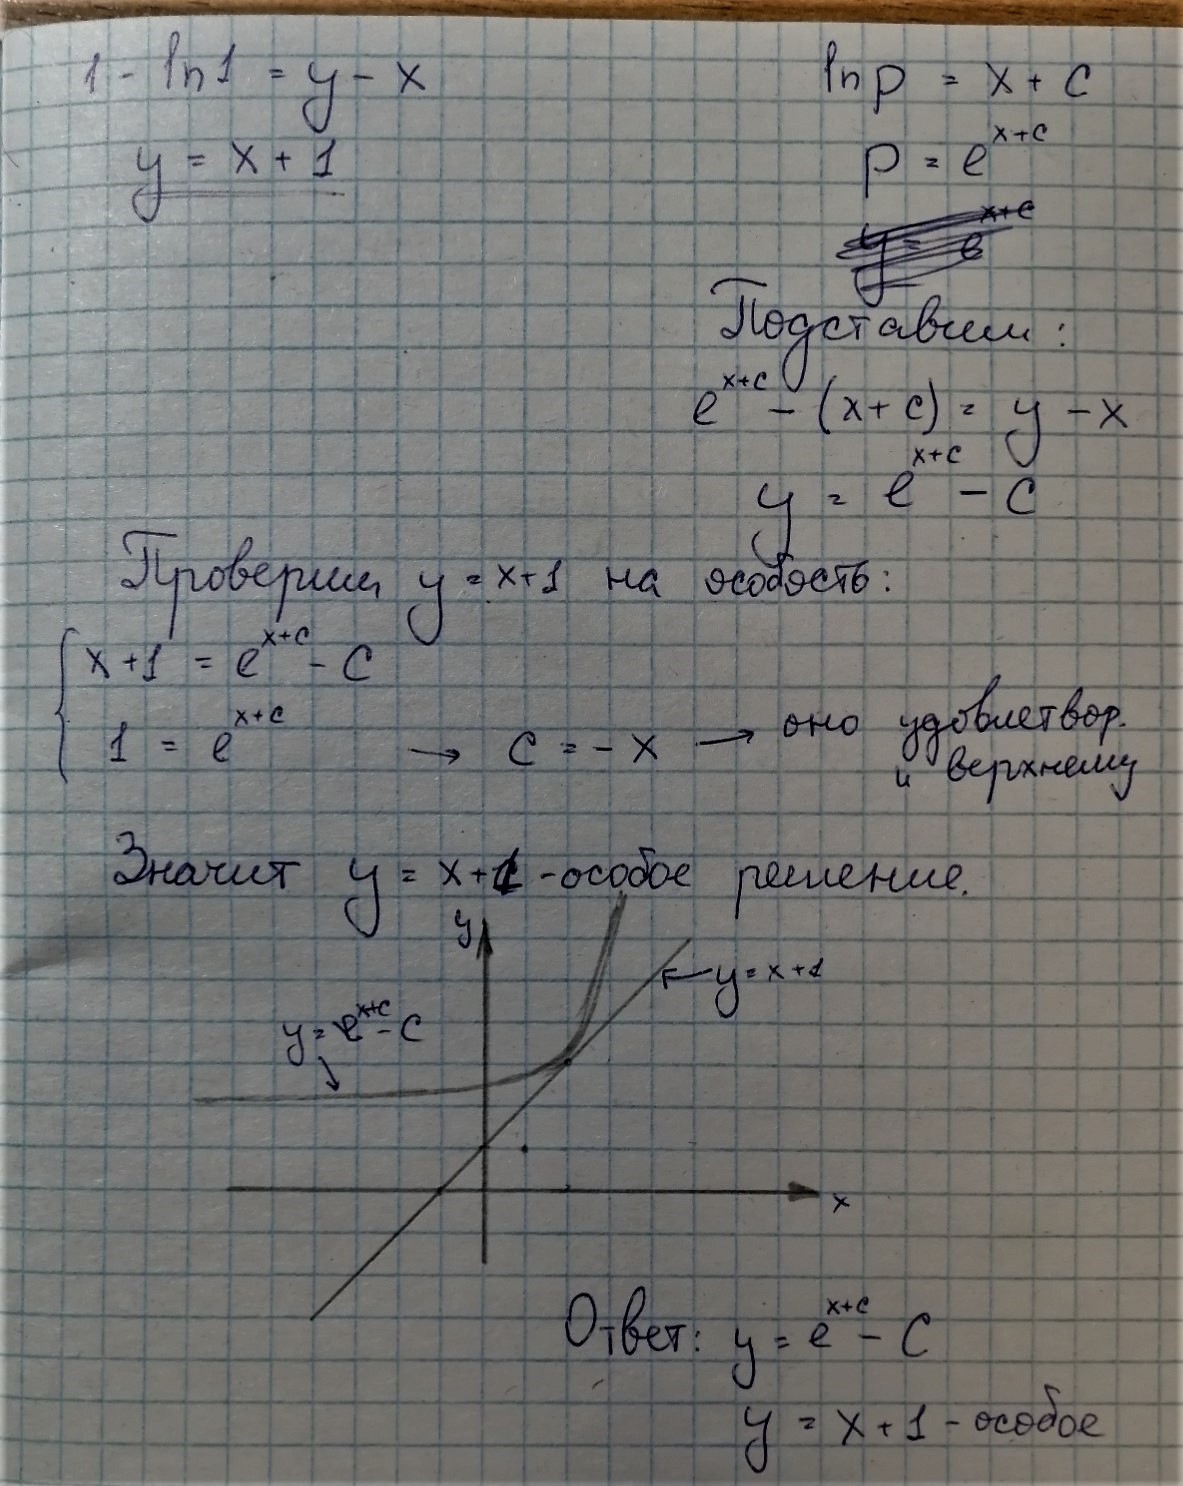 1 - ln1 = y - x
y = x + 1
ln p = x + c
p = e^{x+c}
Подставим:
e^{x+c} - (x + c) = y - x
y = e^{x+c} - C
Проверим y = x+1 на особость:
x + 1 = e^{x+c} - C
1 = e^{x+c} → C = - x → оно удовлетвор.
и верхнему
Значит y = x+1 - особое решение.
y
y = x + 1
y = e^{x+c} - C
x
Ответ: y = e^{x+c} - C
y = x + 1 - особое